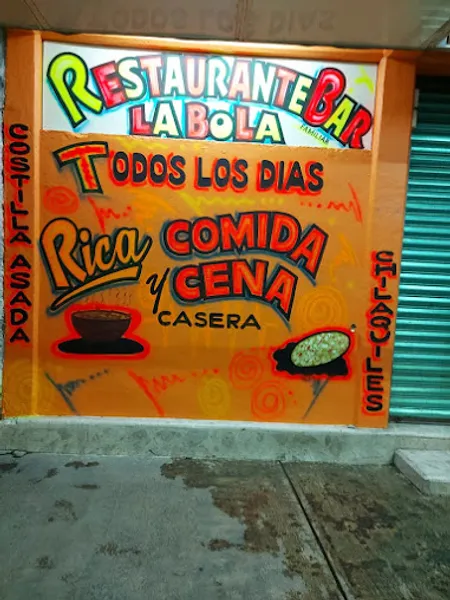 RESTAURANTE BAR
FAMILIAR
LA BOLA
TODOS LOS DIAS
Rica COMIDA
y CENA
CASERA
COSTILLA ASADA
CHILAQUILES